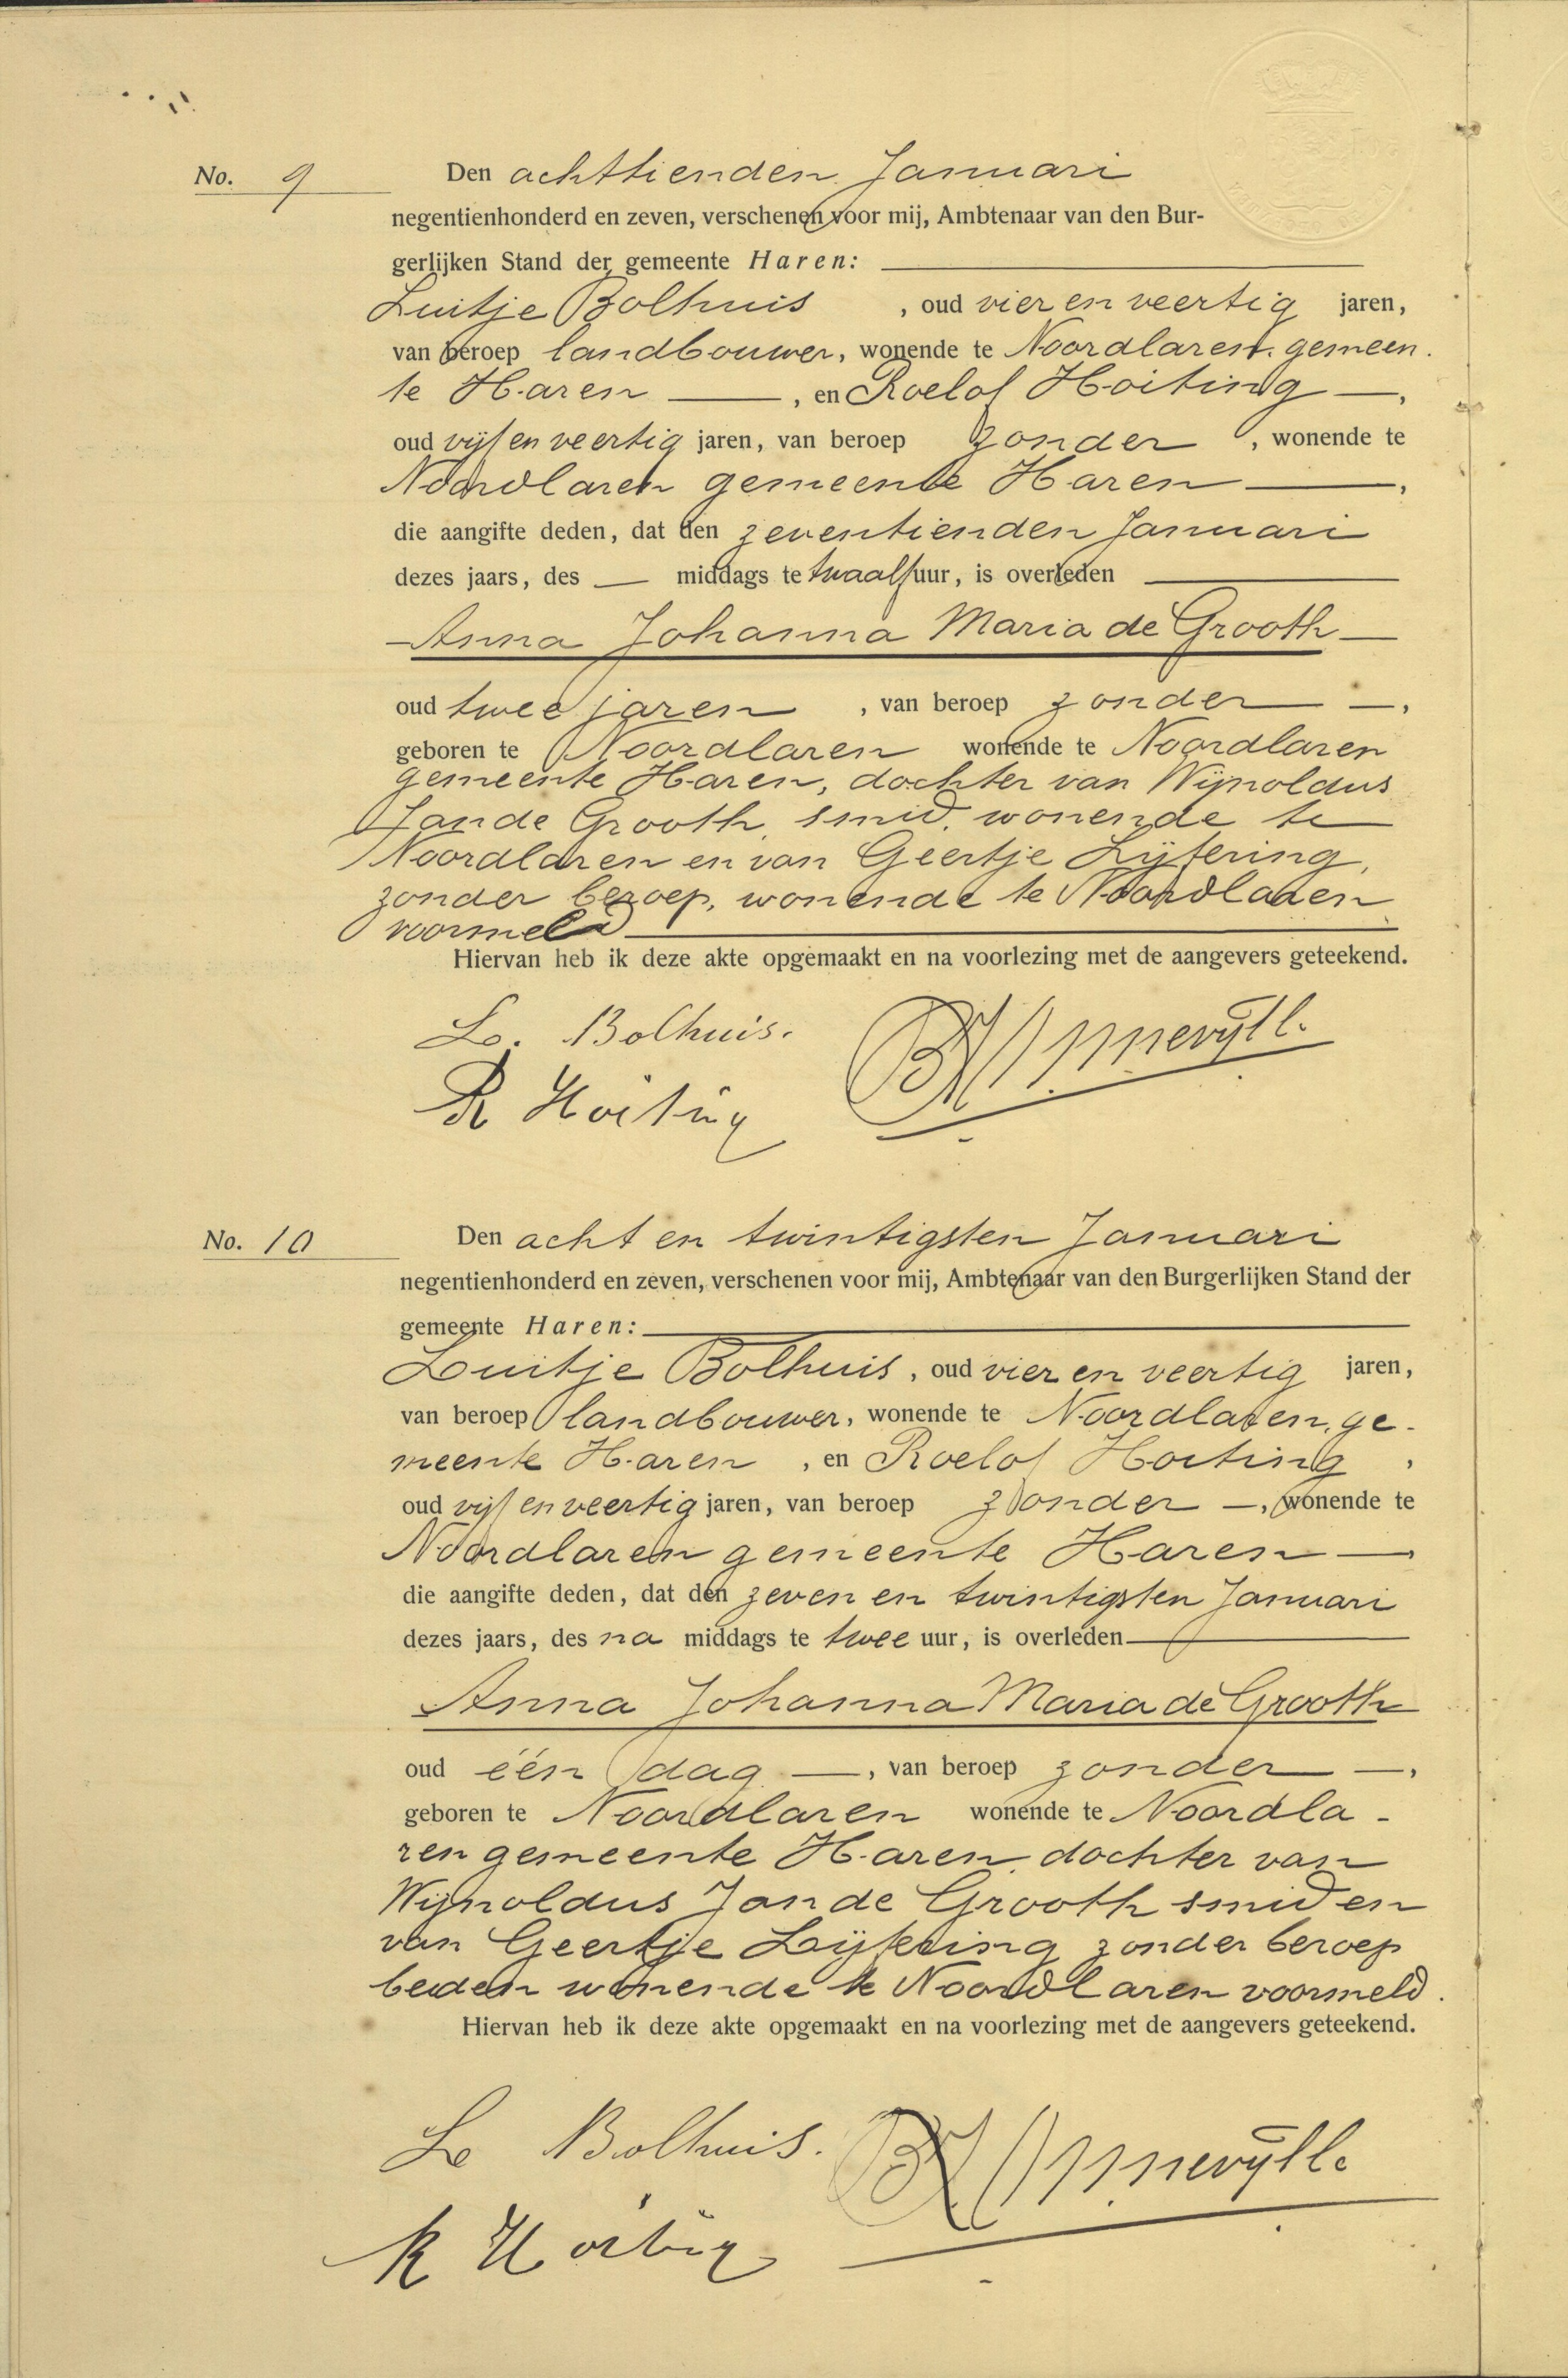 No. 9
Den achttienden Januari
negentienhonderd en zeven, verschenen voor mij, Ambtenaar van den Bur-
gerlijken Stand der gemeente Haren:
Luitje Bolhuis, oud vier en veertig jaren,
van beroep landbouwer, wonende te Noordlaren, gemeen-
te Haren —, en Roelof Hoiting —,
oud vijf en veertig jaren, van beroep zonder, wonende te
Noordlaren gemeente Haren —,
die aangifte deden, dat den zeventienden Januari
dezes jaars, des — middags te twaalf uur, is overleden —
Anna Johanna Maria de Grooth —
oud twee jaren, van beroep zonder —,
geboren te Noordlaren wonende te Noordlaren
gemeente Haren, dochter van Wijnoldus
Jan de Grooth, smid, wonende te
Noordlaren en van Geertje Lijfering,
zonder beroep, wonende te Noordlaren
voormeld —
Hiervan heb ik deze akte opgemaakt en na voorlezing met de aangevers geteekend.
L. Bolhuis.
R Hoiting
No. 10
Den acht en twintigsten Januari
negentienhonderd en zeven, verschenen voor mij, Ambtenaar van den Burgerlijken Stand der
gemeente Haren: —
Luitje Bolhuis, oud vier en veertig jaren,
van beroep landbouwer, wonende te Noordlaren, ge-
meente Haren, en Roelof Hoiting,
oud vijf en veertig jaren, van beroep zonder —, wonende te
Noordlaren gemeente Haren —
die aangifte deden, dat den zeven en twintigsten Januari
dezes jaars, des na middags te twee uur, is overleden —
Anna Johanna Maria de Grooth
oud één dag —, van beroep zonder —,
geboren te Noordlaren wonende te Noordla-
ren gemeente Haren, dochter van
Wijnoldus Jan de Grooth smid en
van Geertje Lijfering zonder beroep
beiden wonende te Noordlaren voormeld.
Hiervan heb ik deze akte opgemaakt en na voorlezing met de aangevers geteekend.
L Bolhuis.
R Hoiting